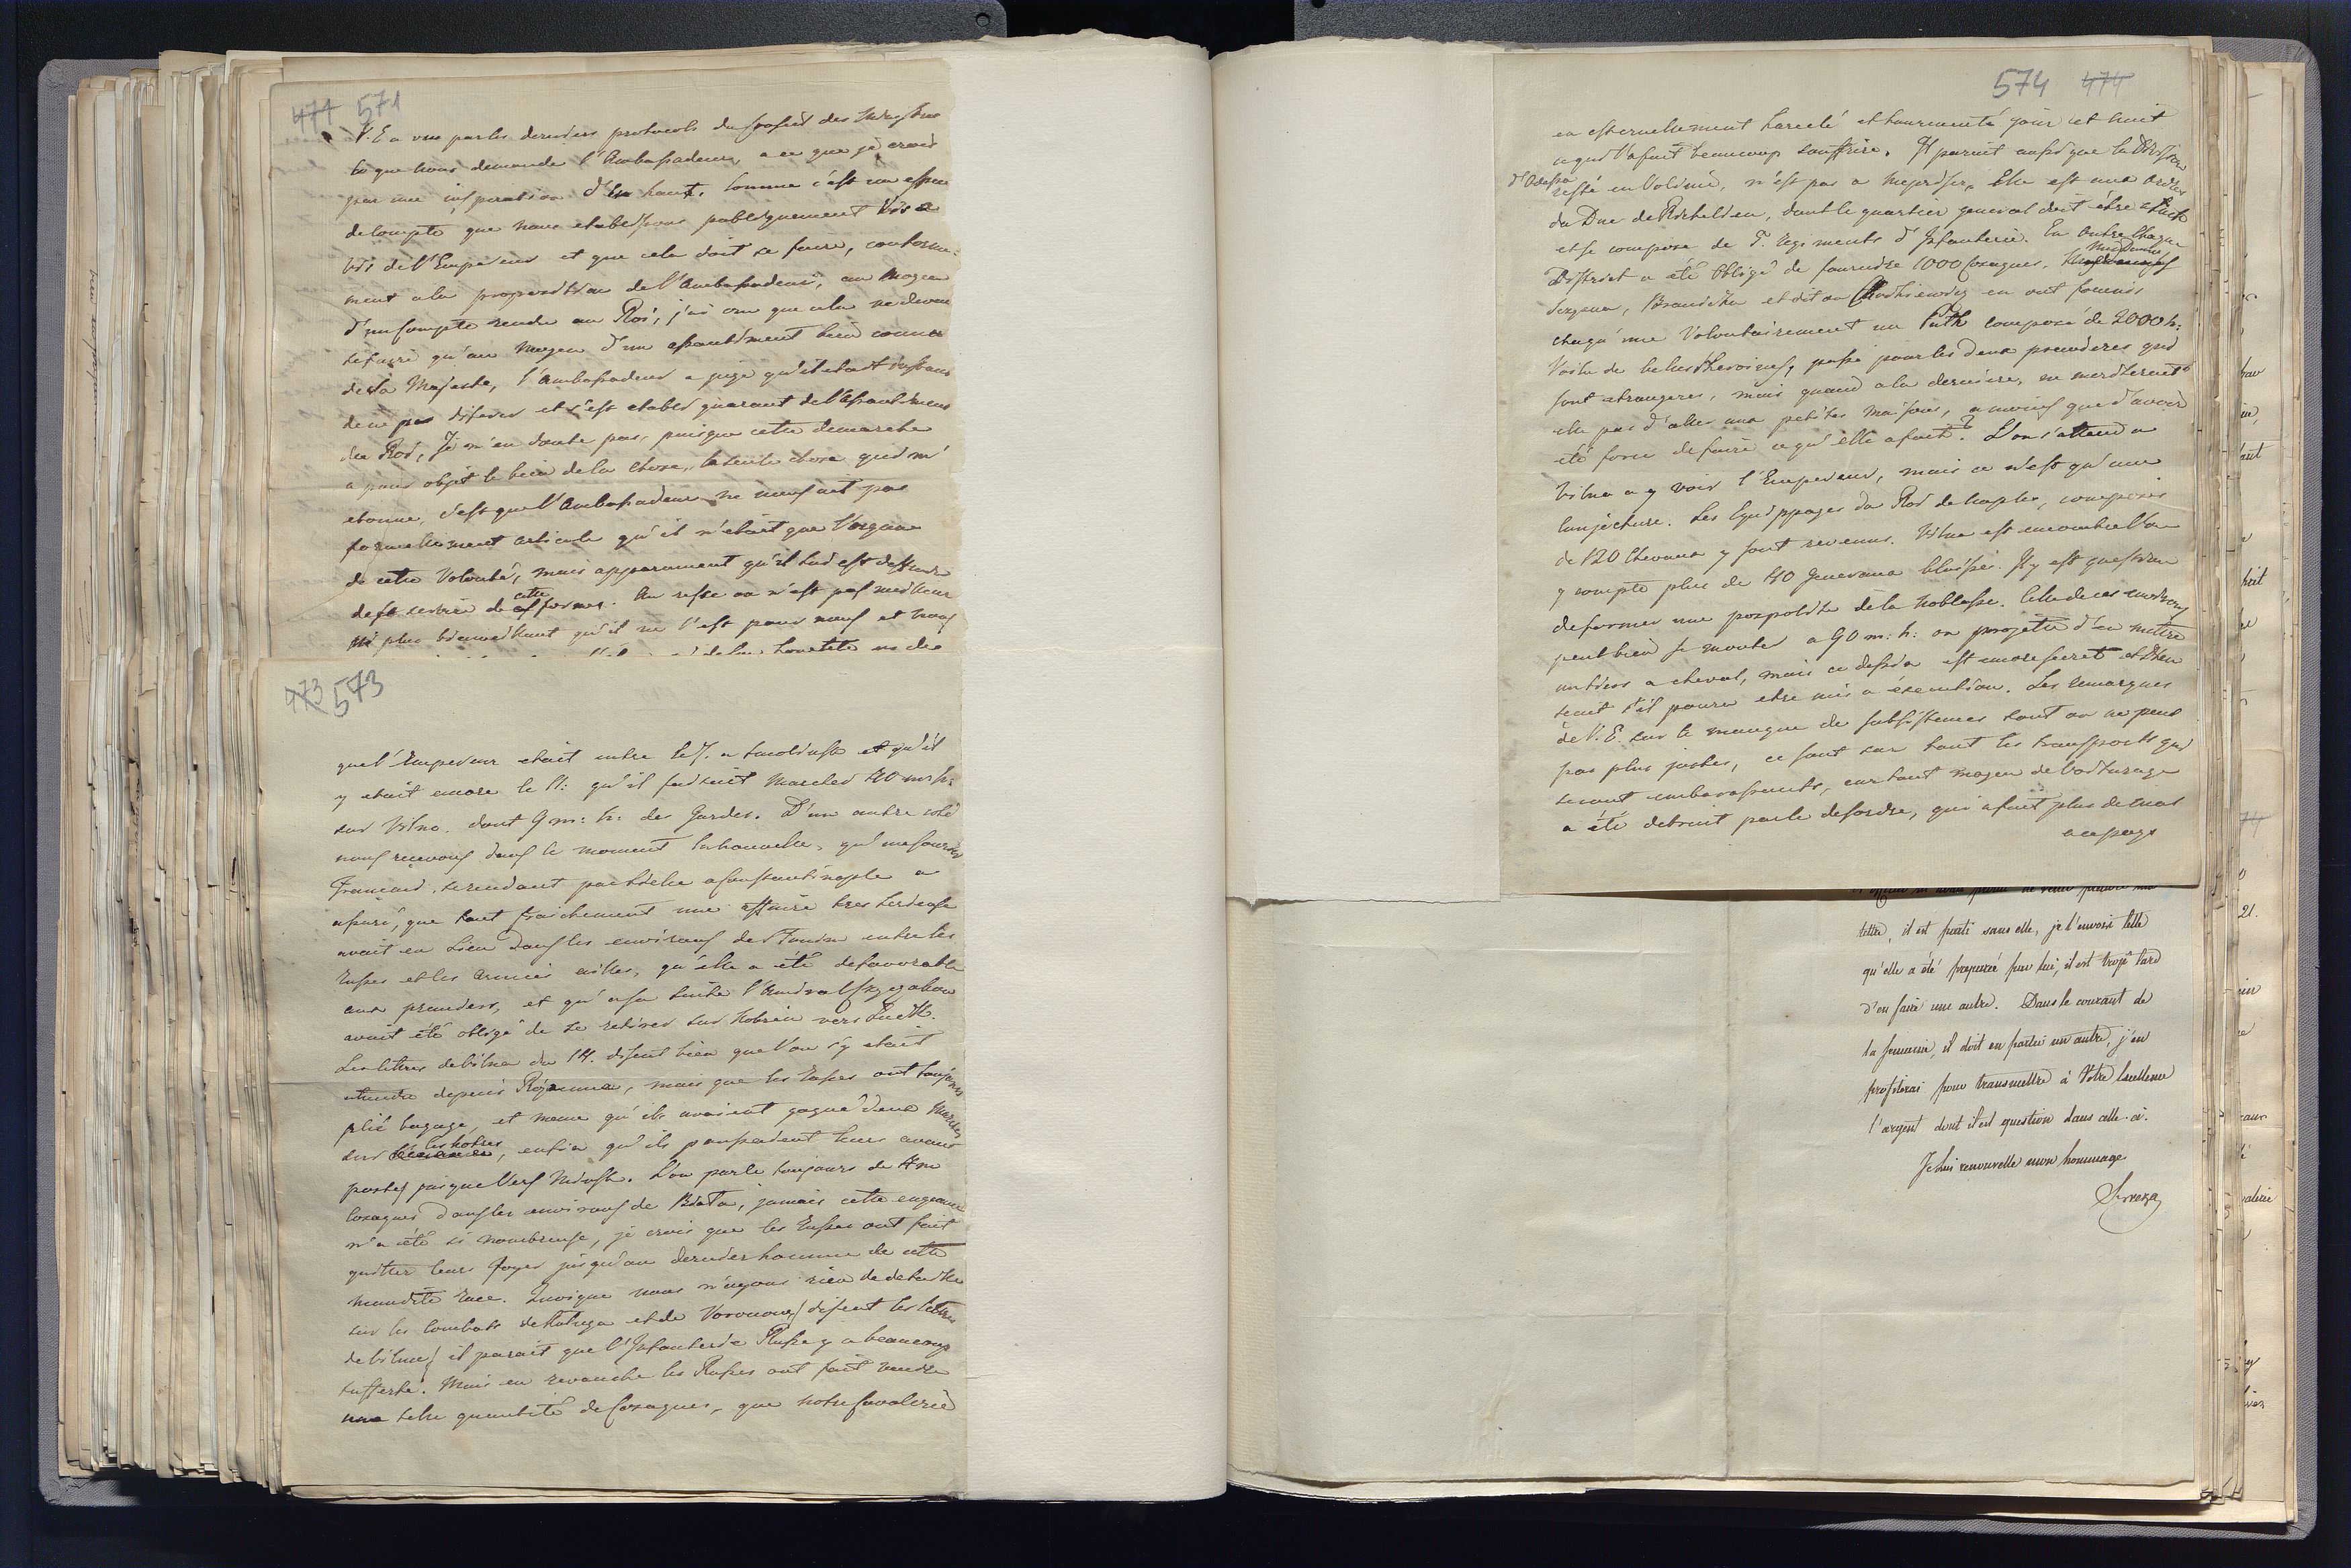 471 571
V. E a vue par les derniers protocols du Conseil des Ministres
ce que nous demande l'Ambassadeur, a ce que je crois
par une inspiration d'en haut. Comme c'est une espece
de compte que nous etablissons publiquement vis a
vis de l'Empereur et que cela doit se faire, conforme-
ment a la proposition de l'Ambassadeur, au moyen
d'un Compte rendu au Roi, j'ai cru que cela ne devoit
se faire qu'au moyen d'un assentiment bien connu
de Sa Majesté, l'Ambassadeur a jugé qu'il etait
de ne pas diferer et s'est etabli garant de l'assentiment
du Roi, Je n'en doute pas, puisque cette demarche
a pour objet le bien de la chose, la seule chose qui m'
etonne, c'est que l'Ambassadeur ne nous ait pas
formellement articulé qu'il n'était que l'organe
de cette Volonté, mais apparament qu'il lui est defendu
de se servir de cette formes. Au reste on n'est pas meilleur
ni plus bienveillant qu'il ne l'est pour nous et nous
473 573
que l'Empereur etait entre le 7. a Smolensk et qu'il
y etait encore le 11: qu'il faisait marcher 40 m: h:
sur Vilno. dont 9 m: h: des Gardes. D'un autre coté
nous reçevons dans le moment la nouvelle, qu'un Courier
Français, se rendant par ici a Constantinople a
assuré, que tout fraichement une affaire tres serieuse
avait eu lieu dans les environs de Slonim entre les
Russes et les Armées aillés, qu'elle a été defavorable
aux premiers, et qu'a sa suite l'Amiral Czyczakow
avait été obligé de se retirer sur Kobrin vers Luck.
Les lettres de Vilna du 14. disent bien que l'on s'y etait
attendu depuis Rozanna, mais que les Russes ont toujours
plié bagage, et meme qu'ils avaient gagné deux Marches
sur les notres, enfin qu'ils poussaient leurs avant
postes jusque vers Minsk. L'on parle toujours de 4 m
Cosaques dans les environs de Biała, jamais cette engeance
n'a été si nombreuse, je crois que les Russes ont fait
quitter leurs foyer jusqu'au dernier homme de cette
maudite race. Quoique nous n'ayons rien de detaillé
sur les Combats de Kaluga et de Voronow/ disent les lettres
de Vilna/ il parait que l'Infanterie Russe y a beaucoup
sufferte. Mais en revanche les Russes ont fait venir
une telle quantité de Cosaques, que notre Cavalerie
574 474
en est cruellement harcelé et tourmenté jour et nuit
ce qui l'a fait beaucoup souffrire. Il parait aussi que la Division
d'Odessa
resté en Volinie, n'est pas a mepriser. Elle est aux ordres
du Duc de Richelieu, dont le quartier general doit être a Luck
et se compose de 5. regiments d'Infanterie. En outre chaque
District a été obligé de fournire 1000 Cosaques.
Severyna, Branicka et dit on Chodkiewicz en ont fournis
chaqu'une Volontairement un Pulk composé de 2000 h:
Voila de belles Heroines, passe pour les deux premieres qui
sont etrangeres, mais quand a la derniere, ne meriterait
elle pas d'aller aux petites maisons, a moins que d'avoir
été forcé de faire ce qu'elle a fait? L'on s'attend a
Vilna a y voir l'Empereur, mais ce n'est qu'une
Conjecture. Les Equippages du Roi de Naples, composés
de 120 Chevaux y sont revenus. Vilna est encombré l'on
y compte plus de 40 Generaux blaissés. Il y est question
de former une pospolite de la Noblesse. Celle de ces environs
peut bien se monter a 90 m: h: on projette d'en mettre
un tiers a cheval, mais ce dessin est encore secret et Dieu
scait s'il pourra etre mis a éxecution. Les remarques
de V. E. sur le manque de subsistances sont on ne peut
pas plus justes, ce sont sur tout les transports qui
seront embarassants, car tout moyen de Voiturage
a été detruit par le desordre, qui a fait plus de mal
a ce pays
lettre, il est parti sans elle, je l'envoie telle
qu'elle a été preparé pour lui, il est trop tard
d'en faire une autre. Dans le courant de
la semaine, il doit en partir un autre, j'en
profiterai pour transmettre à Votre Excellence
l'argent dont il est question dans celle-ci.
Je lui renouvelle mon hommage